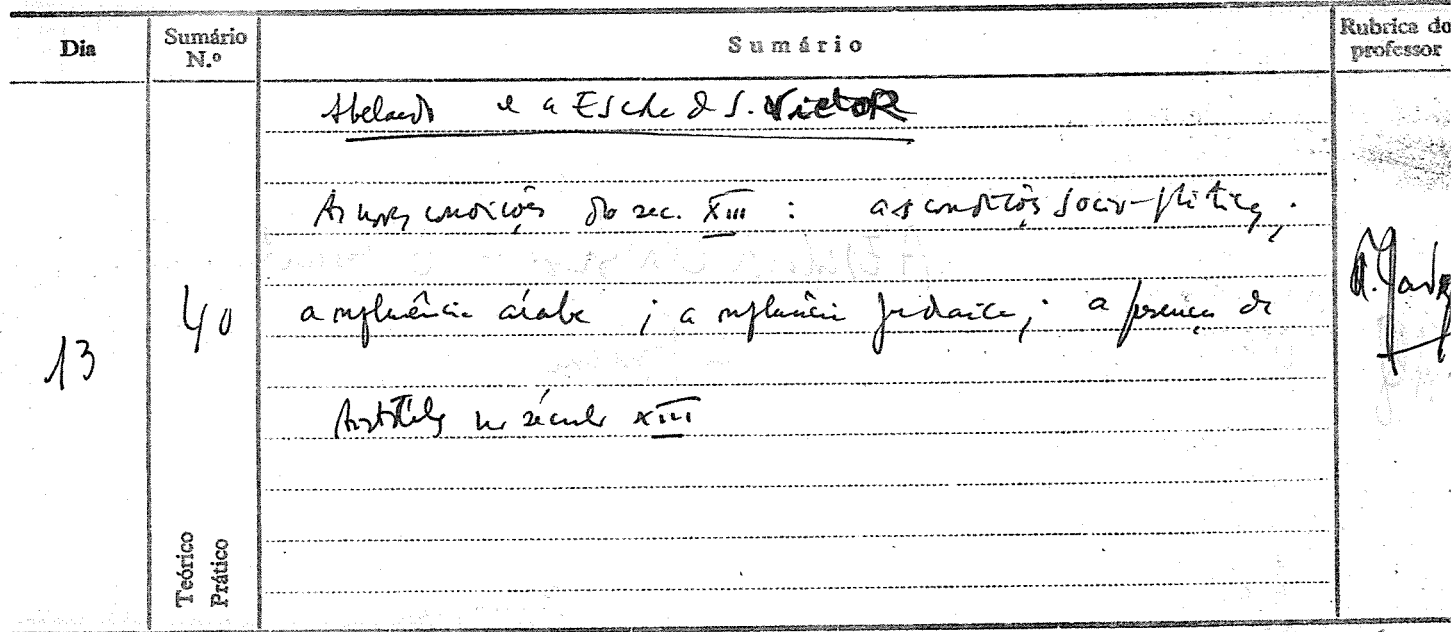 Dia
Sumário N.º
Sumário
Rubrica do professor
Abelardo e a Escola de S. Victor
As novas condições do sec. XIII : as condições socio-políticas;
13
40
a influência árabe ; a influência judaica; a presença de
Aristóteles no século XIII
Teórico
Prático